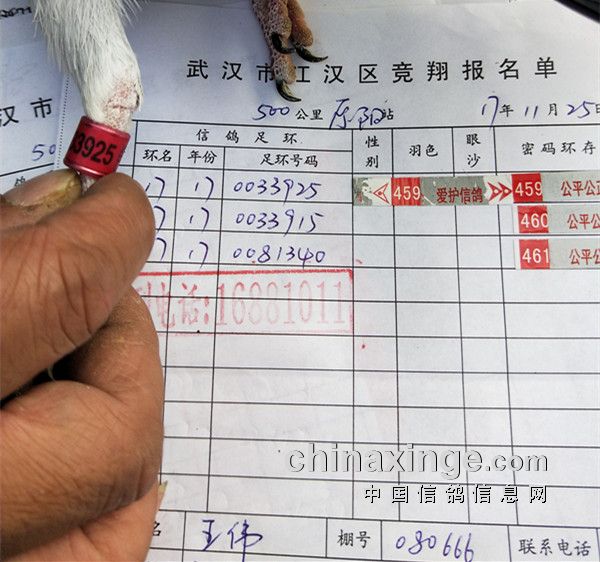 武汉市江汉区竞翔报名单
汉市
500公里 站 17年11月25日
50
信鸽足环 性别 羽色 眼沙 密码环存
环名 年份 足环号码
33925
17 17 0033925 459 爱护信鸽 459 公平公正
17 17 0033915 460 公平公
17 17 0081340 461 公平公
电话:16881011
chinaxinge.com
中国信鸽信息网
名 王伟 棚号 080666 联系电话